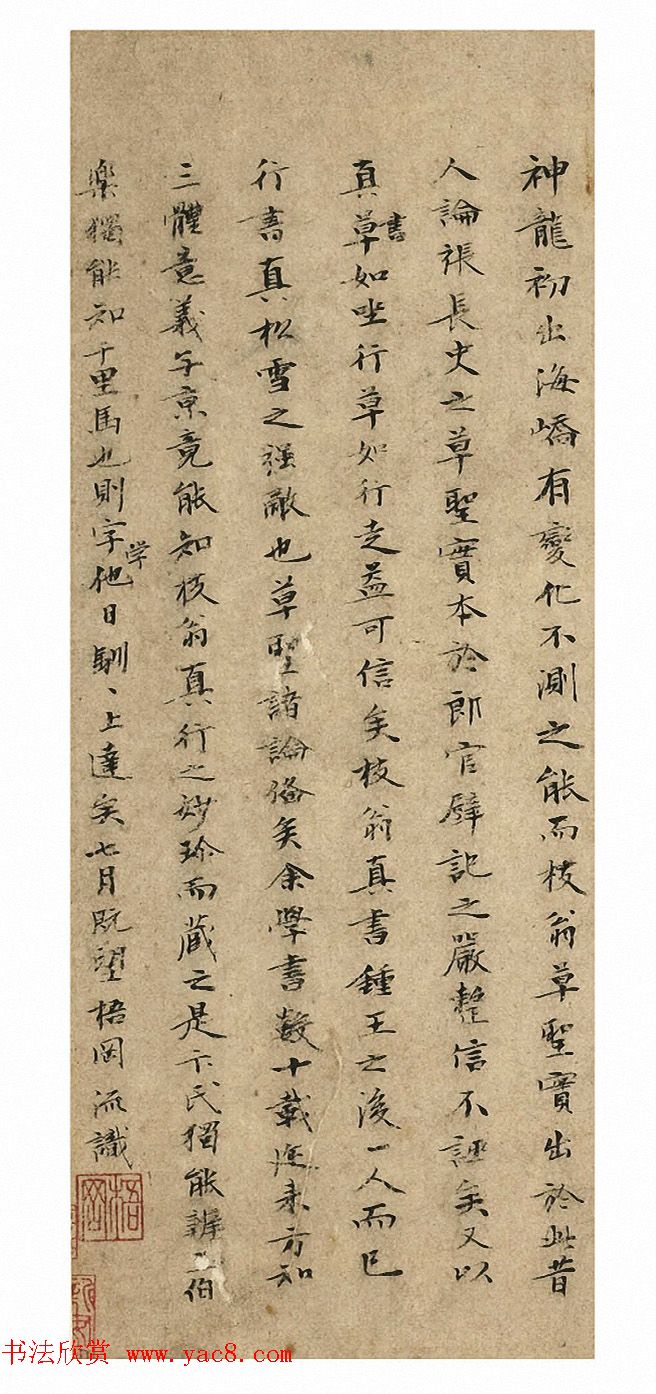 神龍初出海嶠有變化不測之能而枝翁草聖實出於此昔
人論張長史之草聖實本於郎官壁記之嚴整信不誣矣又以
真書草如坐行草如行走益可信矣枝翁真書鍾王之後一人而已
行書真松雪之強敵也草聖諸論備矣余學書數十載近來方知
三體意義子京竟能知枝翁真行之妙珍而藏之是卞氏獨能辨玉伯
樂獨能知千里馬也則字学他日馴〻上達矣七月既望梧岡流識
梧岡
书法欣赏 www.yac8.com